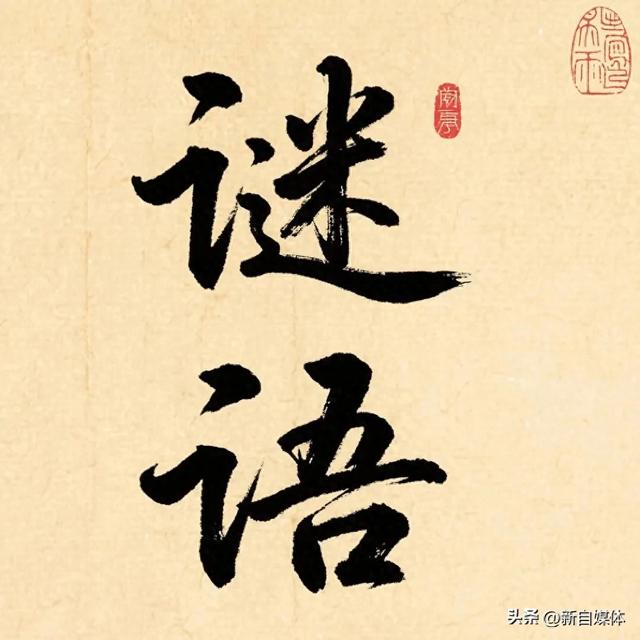 谜
语
头条 @新自媒体